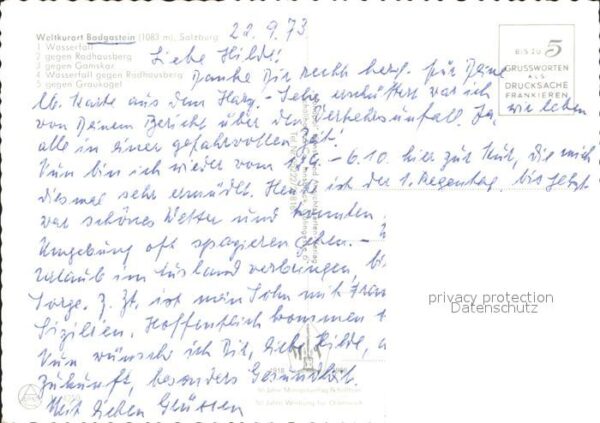 22.9.73
Weltkurort Badgastein (1083 m), Salzburg
1 Wasserfall
2 gegen Radhausberg
3 gegen Gamskar
4 Wasserfall gegen Radhausberg
5 gegen Graukogel
BIS ZU 5
GRUSSWORTEN
ALS
DRUCKSACHE
FRANKIEREN
Liebe Hilde!
Danke Dir recht herzl. für Deine
lb. Karte aus dem Harz. - Sehr erschüttert war ich
von Deinem Bericht über den Verkehrsunfall. Ja, wir leben
alle in einer gefahrvollen Zeit!
Nun bin ich wieder vom - 6.10. hier zur Kur, die mich
diesmal sehr ermüdet. Heute ist der 1. Regentag, bis jetzt
war schönes Wetter und konnten
Umgebung oft spazieren gehen. -
Urlaub im Ausland verbringen,
Sorge. Z. Zt. ist mein Sohn mit Frau
Sizilien. Hoffentlich kommen
Nun wünsche ich Dir, liebe Hilde,
Zukunft, besonders Gesundheit.
Mit lieben Grüssen
privacy protection
Datenschutz